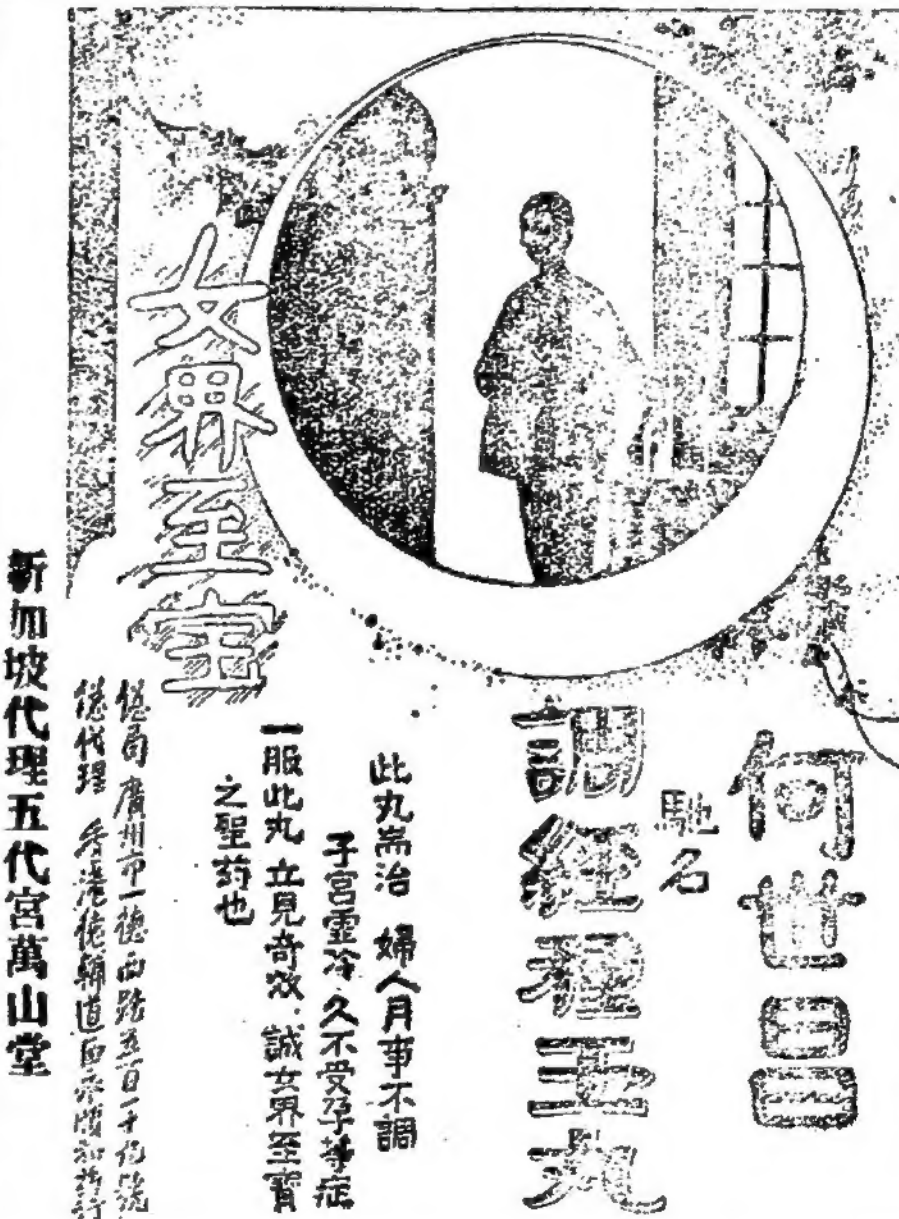 何世昌
馳名
調經種玉丸
此丸耑治 婦人月事不調
子宮虛冷久不受孕等症
一服此丸立見奇效.誠女界至寶
之聖药也
女界至宝
總局廣州市一德西路五百
總代理 香港德輔道西
新加坡代理五代宮萬山堂